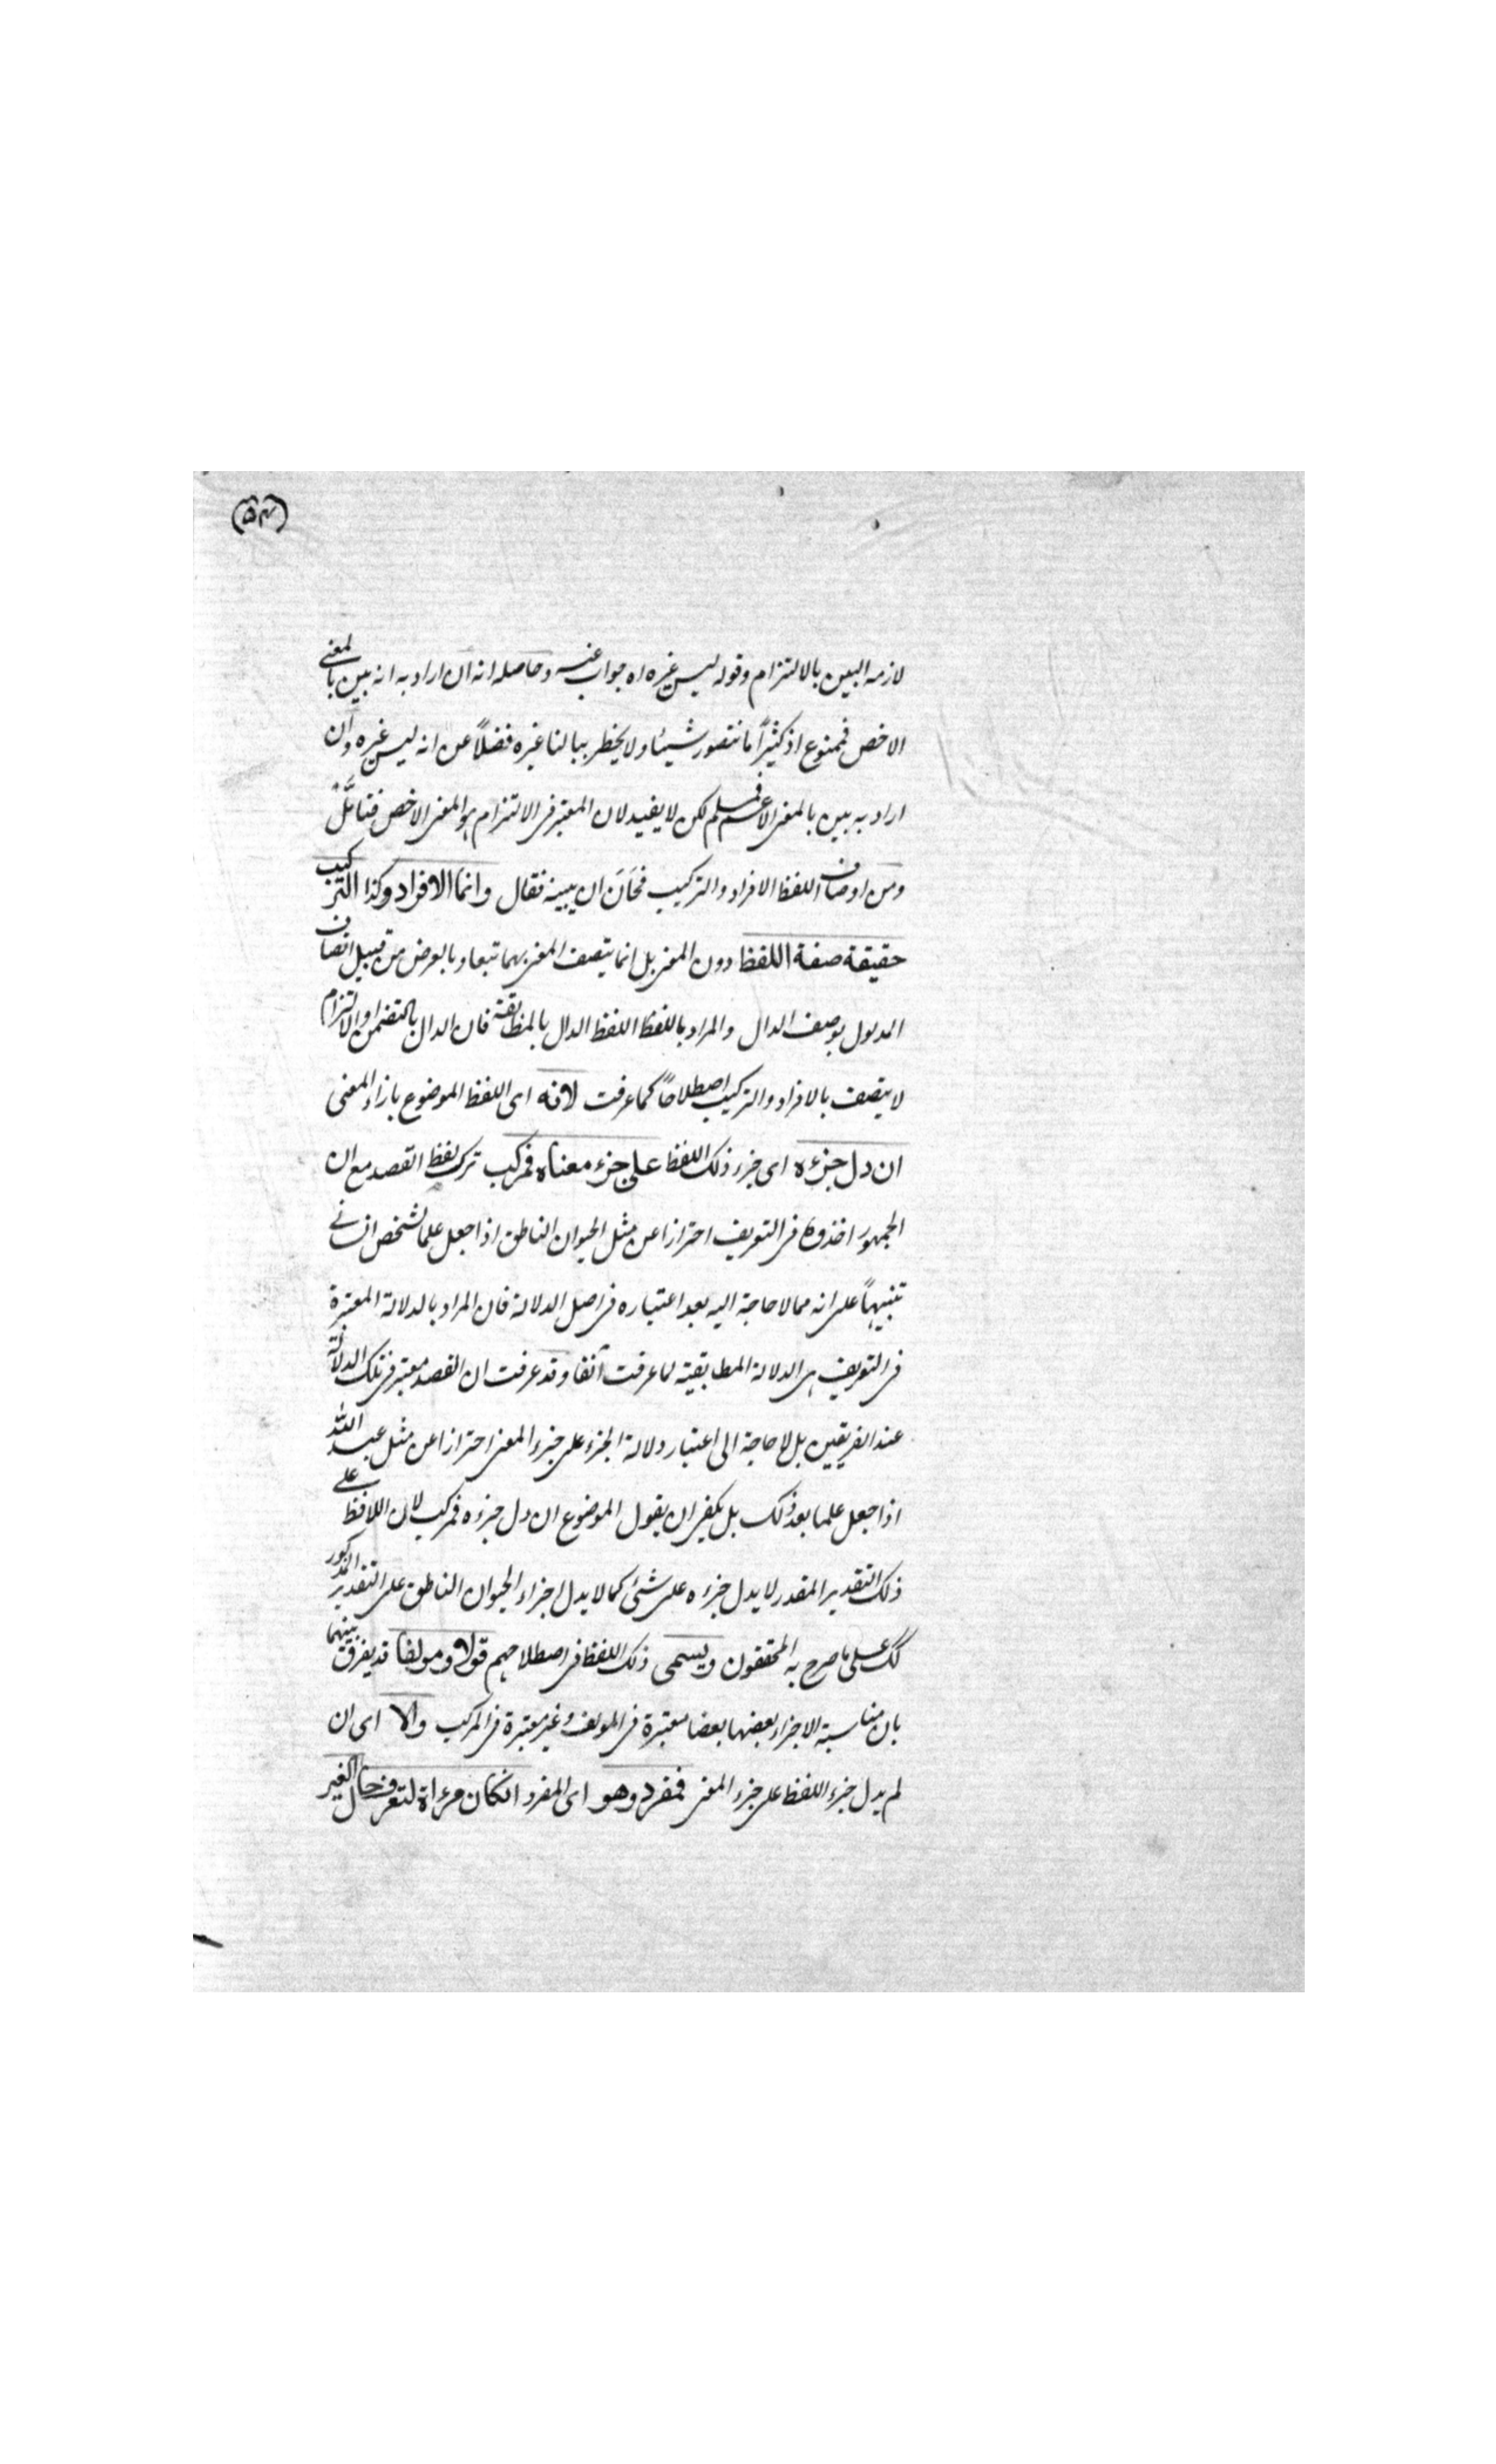 (٥٣)
لازمه البين بالالتزام وقوله ليس غيره اه جواب عنه وحاصله انه ان اراد به انه بين بالمعنى
الاخص فممنوع اذ كثيرًا ما نتصور شيئا ولا يخطر ببالنا غيره فضلاً عن انه ليس غيره وان
اراد به بين بالمعنى الاعم فمسلم لكن لا يفيد لان المعتبر فى الالتزام هو المعنى الاخص فتأمَّلْ
ومن اوصاف اللفظ الافراد والتركيب فحَانَ ان يبينه فقال وانما الافراد وكذا التركيب
حقيقة صفة اللفظ دون المعنى بل انما يتصف المعنى بهما تبعا وبالعرض من قبيل اتصاف
المدلول بوصف الدال والمراد باللفظ اللفظ الدال بالمطابقة فان الدال بالتضمن او الالتزام
لا يتصف بالافراد والتركيب اصطلاحًا كما عرفت لانه اى اللفظ الموضوع بازاء المعنى
ان دل جزءه اى جزء ذلك اللفظ على جزء معناه فمركب ترك لفظ القصد مع ان
الجمهور اخذوه فى التعريف احترازا عن مثل الحيوان الناطق اذا جعل علما لشخص انسانے
تنبيهاً على انه مما لا حاجة اليه بعد اعتباره فى اصل الدلالة فان المراد بالدلالة المعتبرة
فى التعريف هى الدلالة المطابقية لما عرفت آنفا وقد عرفت ان القصد معتبر فى تلك الدلالة
عند الفريقين بل لا حاجة الى اعتبار دلالة الجزء على جزء المعنى احترازا عن مثل عبد الله
اذا جعل علما بعد ذلك بل يكفى ان يقول الموضوع ان دل جزءه فمركب لان اللافظ علے
ذلك التقدير المقدر لا يدل جزءه على شئ كما لا يدل اجزاء الحيوان الناطق على التقدير المذكور
كك على ما صرح به المحققون ويسمى ذلك اللفظ فى اصطلاحهم قولا ومولفا قد يفرق بينهما
بان مناسبة الاجزاء بعضها بعضا معتبرة فى المولف وغير معتبرة فى المركب والا اى ان
لم يدل جزء اللفظ على جزء المعنى فمفرد وهو اى المفرد انكان مرءاة لتعرف حال الغير